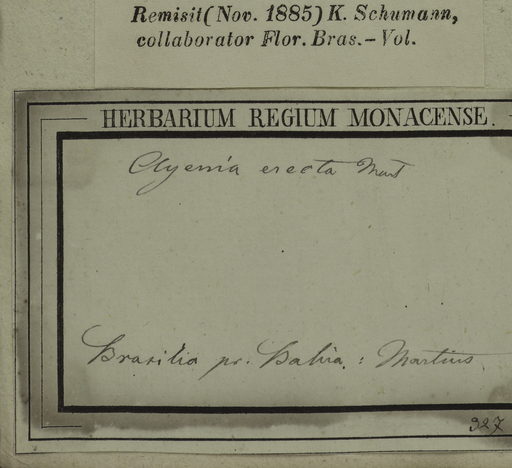 Remisit (Nov. 1885) K. Schumann,
collaborator Flor. Bras. – Vol.
HERBARIUM REGIUM MONACENSE.
Ayenia erecta Mart
Brasilia pr. Bahia : Martius
327